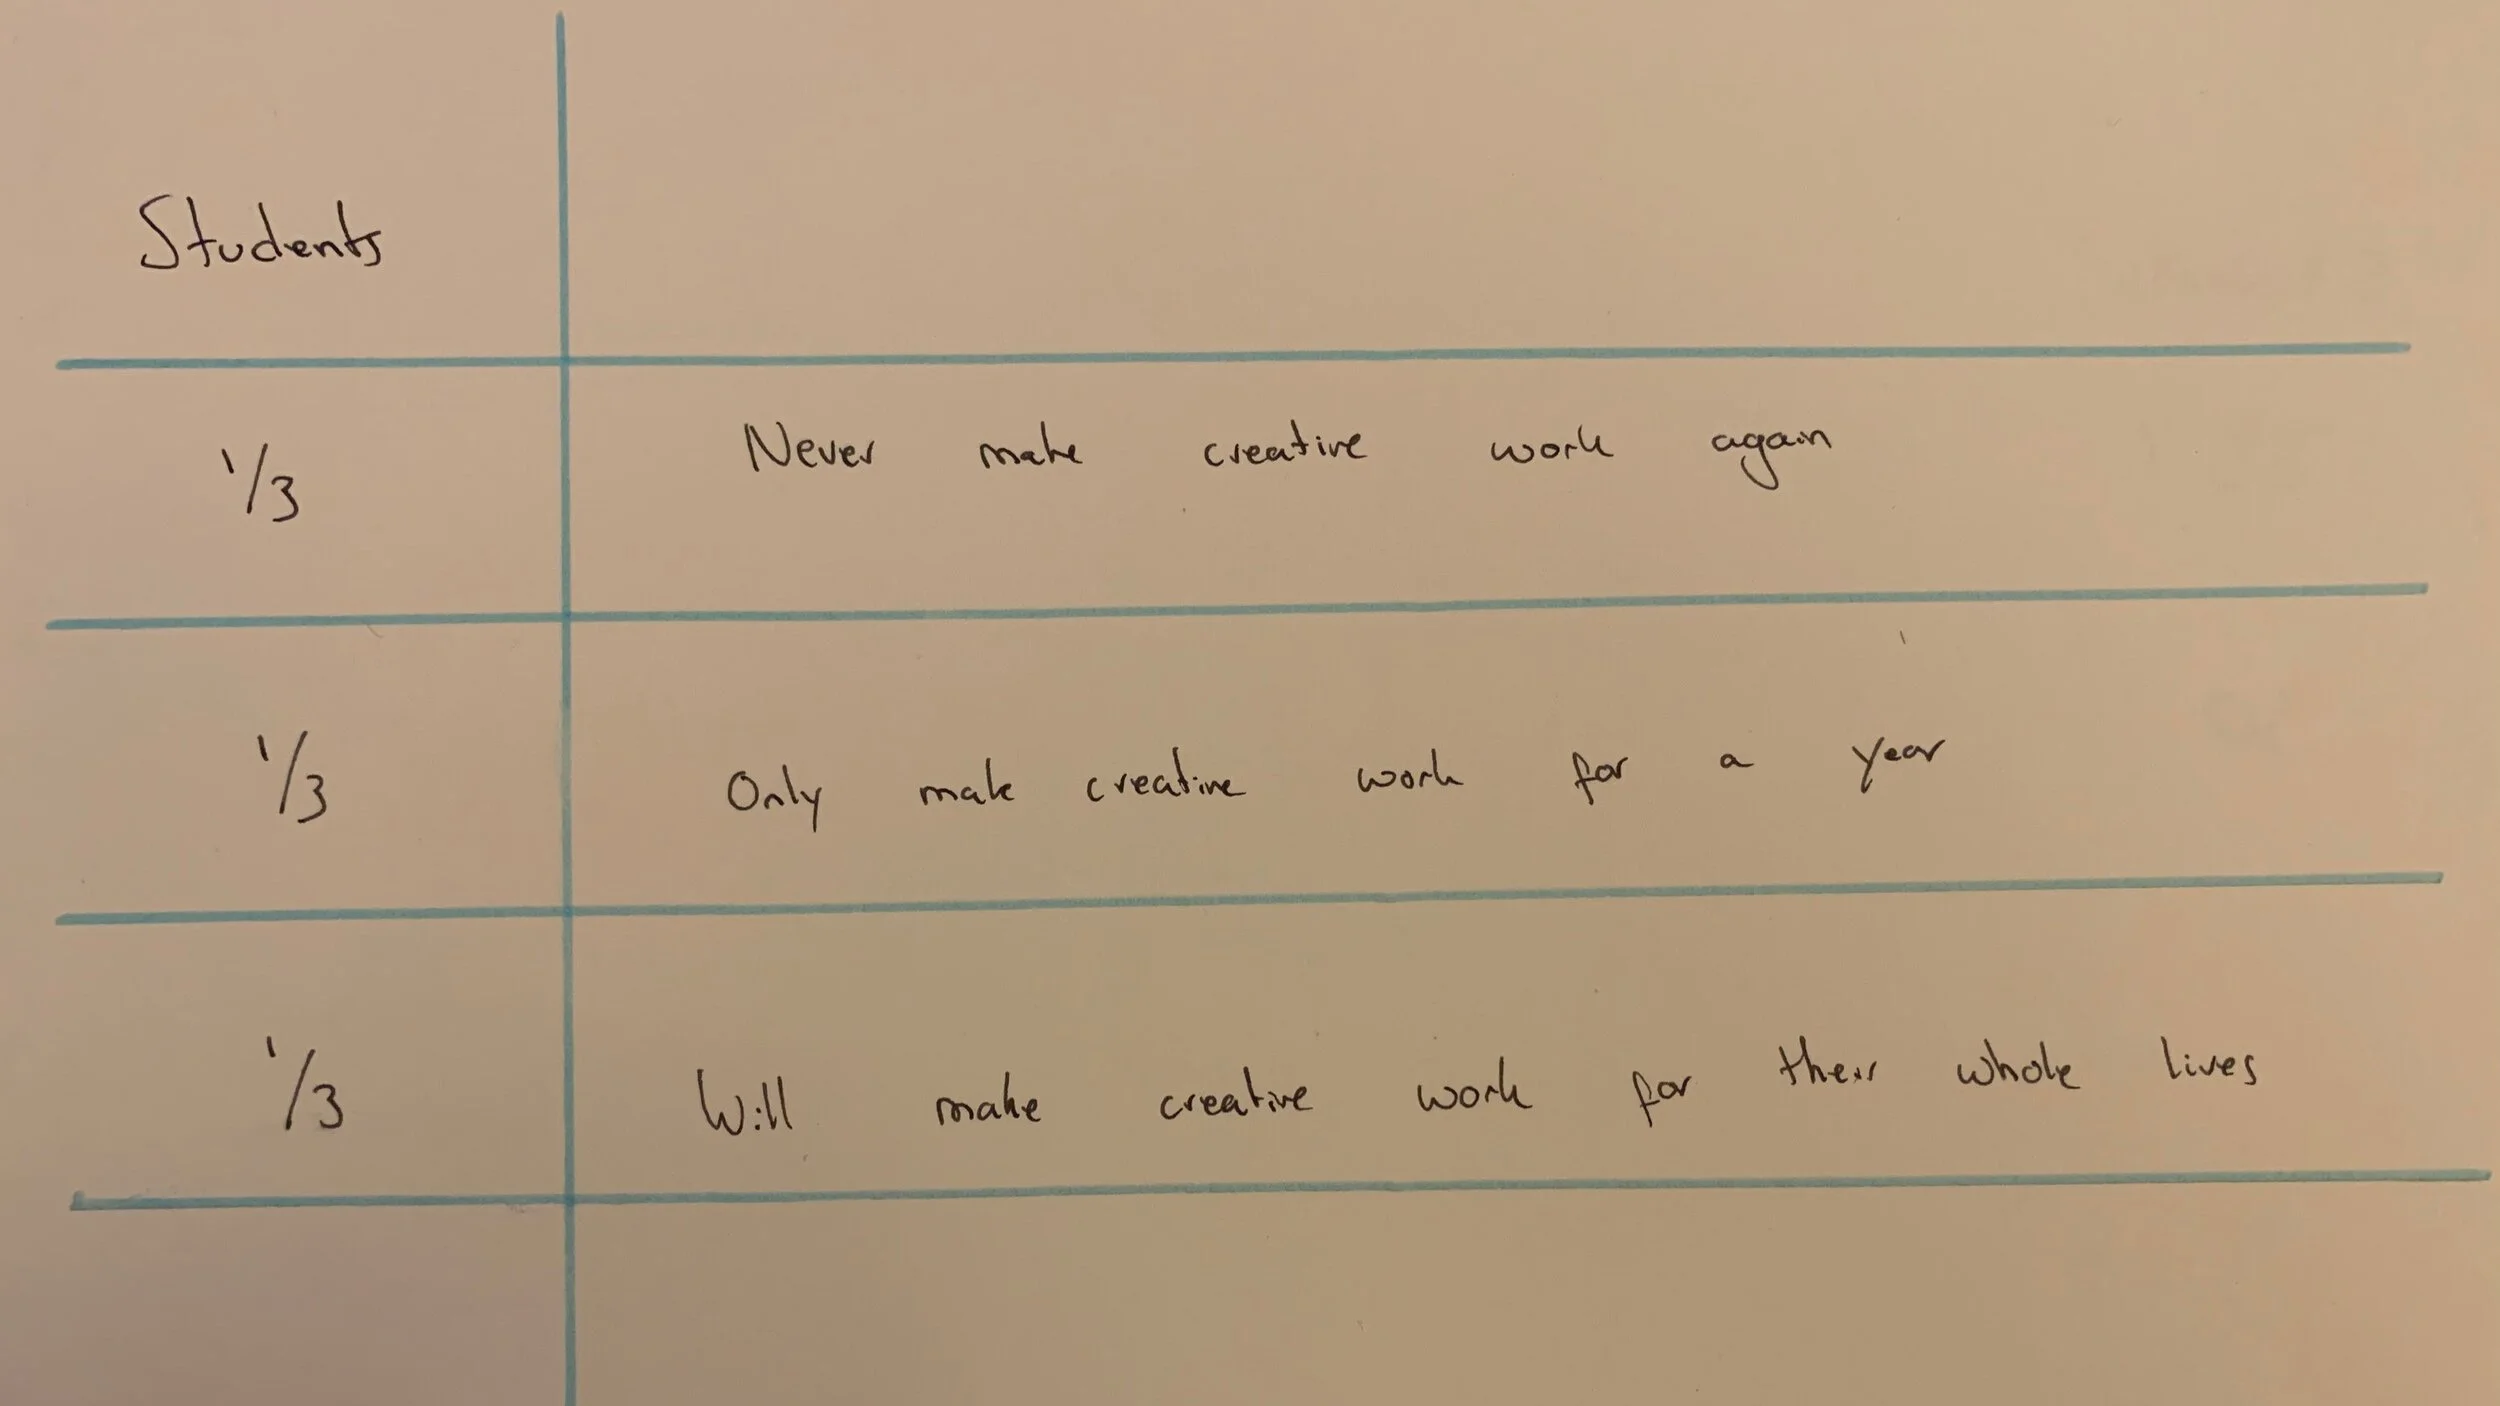 Students
1/3 Never make creative work again
1/3 Only make creative work for a year
1/3 Will make creative work for their whole lives